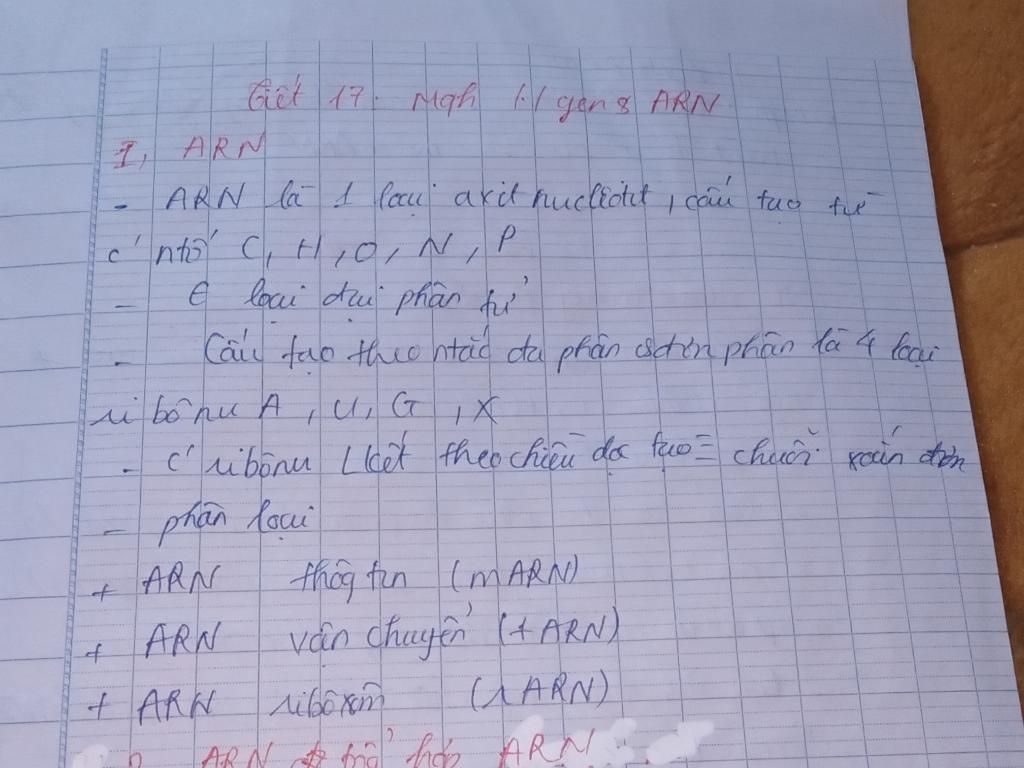 Tiết 17. Mqh 1.1 gen & ARN
I, ARN
- ARN là 1 loại axit nucliotit, cấu tạo từ
c' ntố C, H, O, N, P
- E loại đại phân tử
- Cấu tạo theo ntắc đa phân đơn phân là 4 loại
ribônu A, U, G, X
- c' ribônu Lkết theo chiều dọc tạo = chuỗi xoắn đơn
- phân loại
+ ARN thôg tin (mARN)
+ ARN vân chuyển (tARN)
+ ARN ribôxôm (rARN)
ARN ARN